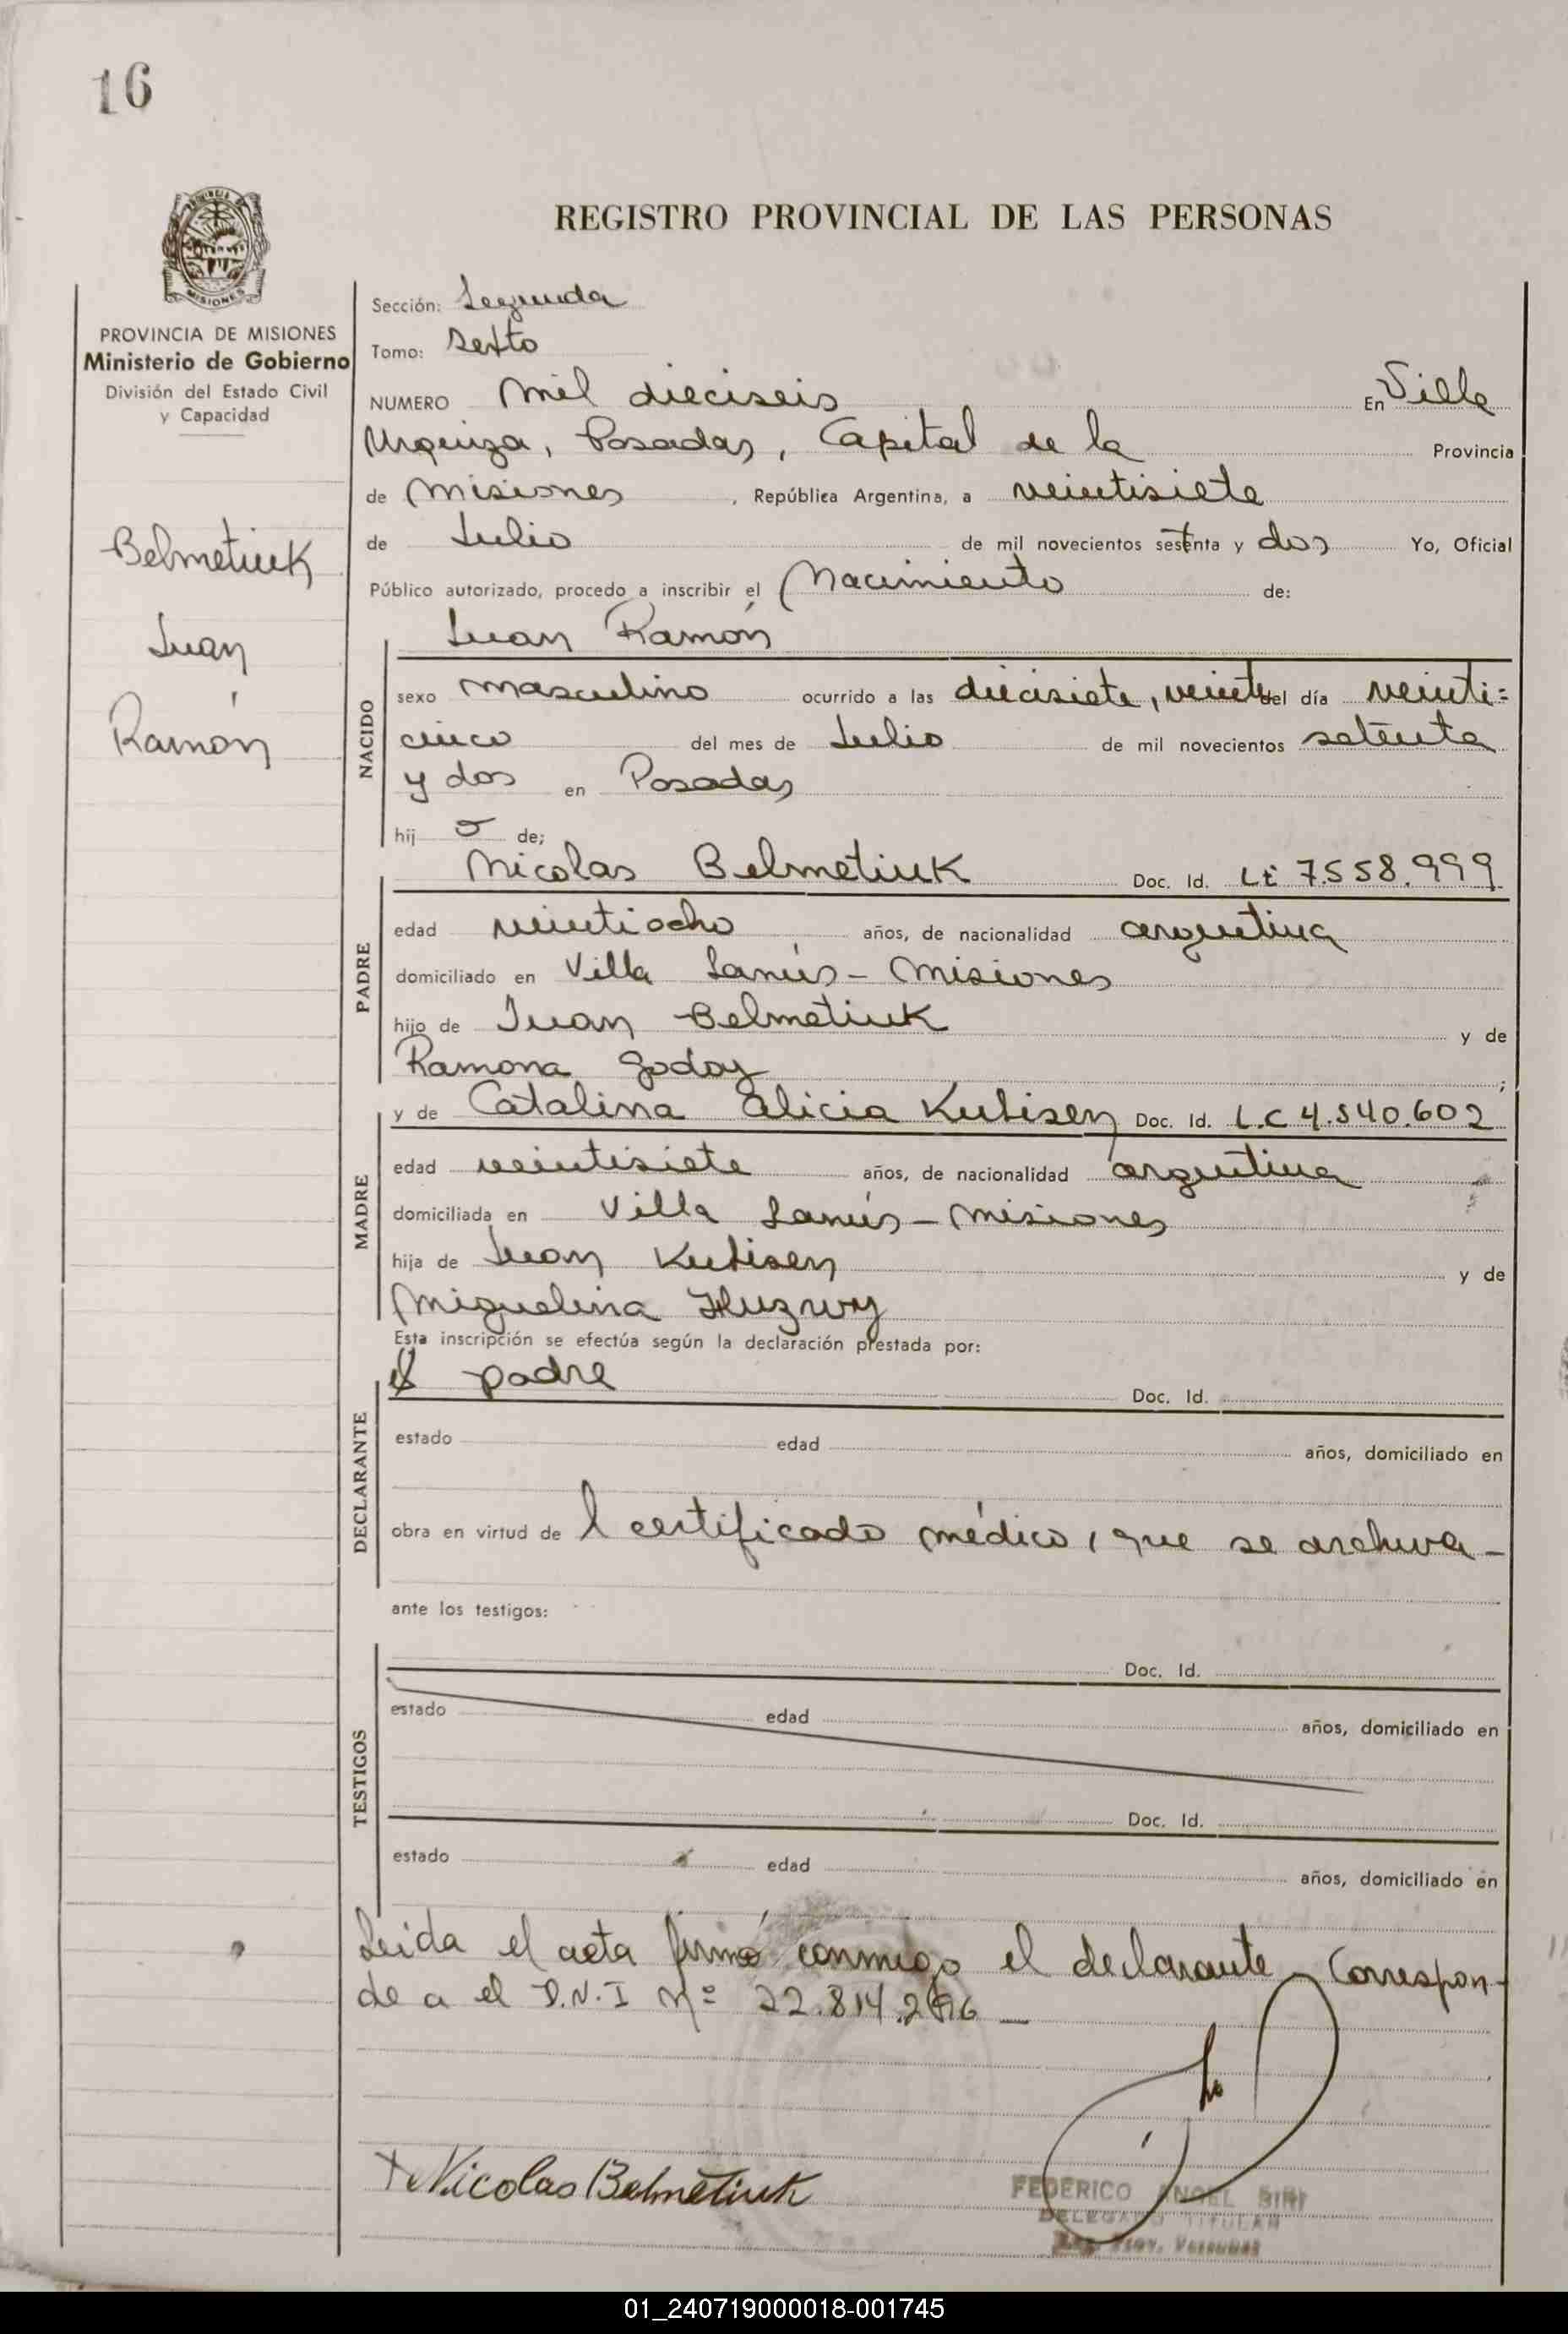 16
REGISTRO PROVINCIAL DE LAS PERSONAS
MISIONES
PROVINCIA DE MISIONES
Ministerio de Gobierno
División del Estado Civil
y Capacidad
Belmetiuk
Juan
Ramón
Sección: Segunda
Tomo: Sexto
NUMERO mil dieciseis En Villa
Urquiza, Posadas, Capital de la Provincia
de Misiones, República Argentina, a veintisiete
de Julio de mil novecientos setenta y dos Yo, Oficial
Público autorizado, procedo a inscribir el Nacimiento de:
Juan Ramón
NACIDO
sexo masculino ocurrido a las diecisiete, veinte del día veinti=
cinco del mes de Julio de mil novecientos setenta
y dos en Posadas
hij o de;
Nicolas Belmetiuk Doc. Id. 7.558.999
PADRE
edad veintiocho años, de nacionalidad argentina
domiciliado en Villa Lanús - Misiones
hijo de Juan Belmetiuk y de
Ramona Godoy;
y de Catalina Alicia Kubisen Doc. Id. L.C 4.540.602
MADRE
edad veintisiete años, de nacionalidad argentina
domiciliada en Villa Lanús - Misiones
hija de Juan Kubisen y de
Miguelina
Esta inscripción se efectúa según la declaración prestada por:
el padre Doc. Id.
DECLARANTE
estado edad años, domiciliado en
obra en virtud de l certificado médico, que se archiva -
ante los testigos:
TESTIGOS
Doc. Id.
estado edad años, domiciliado en
Doc. Id.
estado edad años, domiciliado en
Leida el acta firmó conmigo el declarante Correspon-
de a el D.N.I Nº 22.814.
+ Nicolas Belmetiuk
FEDERICO ANGEL
DELEGADO TITULAR
01_240719000018-001745